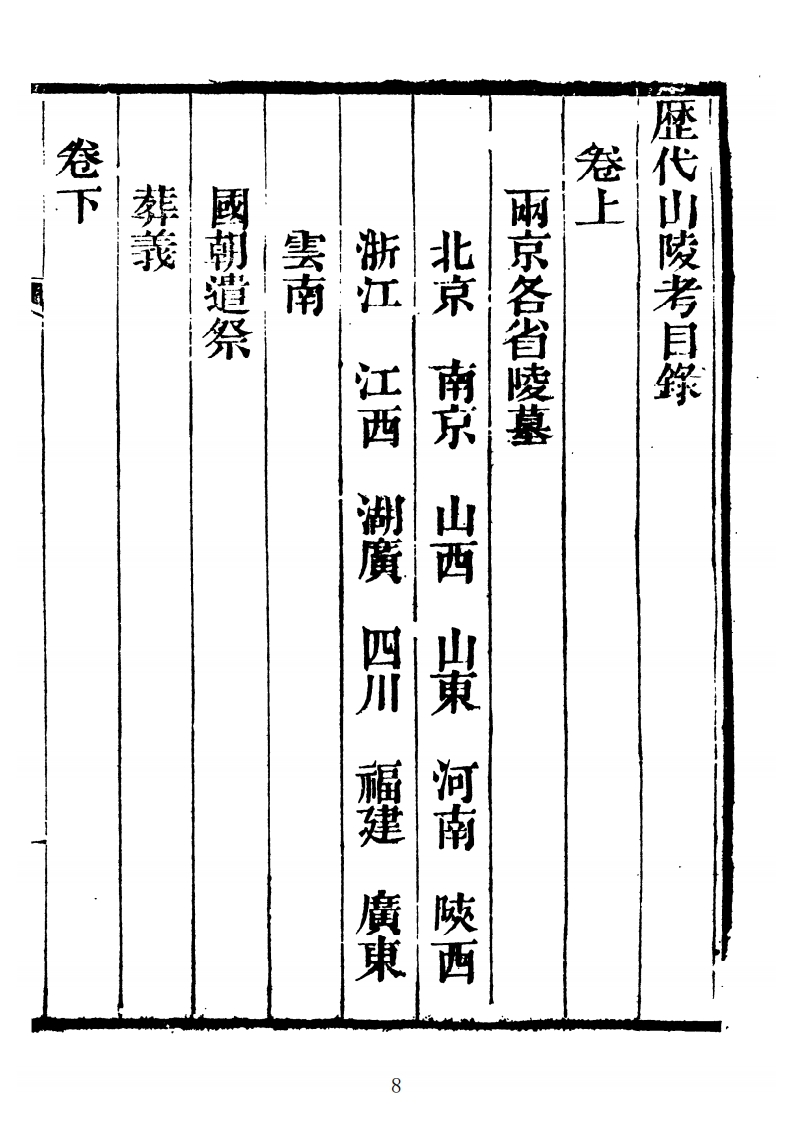 歷代山陵考目錄
卷上
兩京各省陵墓
北京 南京 山西 山東 河南 陝西
浙江 江西 湖廣 四川 福建 廣東
雲南
國朝遣祭
葬義
卷下
8